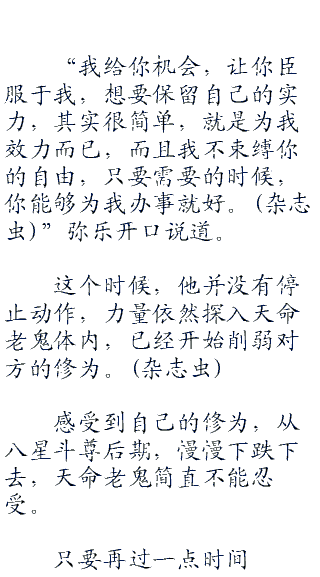 “我给你机会，让你臣
服于我，想要保留自己的实
力，其实很简单，就是为我
效力而已，而且我不束缚你
的自由，只要需要的时候，
你能够为我办事就好。(杂志
虫)”弥乐开口说道。
这个时候，他并没有停
止动作，力量依然探入天命
老鬼体内，已经开始削弱对
方的修为。(杂志虫)
感受到自己的修为，从
八星斗尊后期，慢慢下跌下
去，天命老鬼简直不能忍
受。
只要再过一点时间